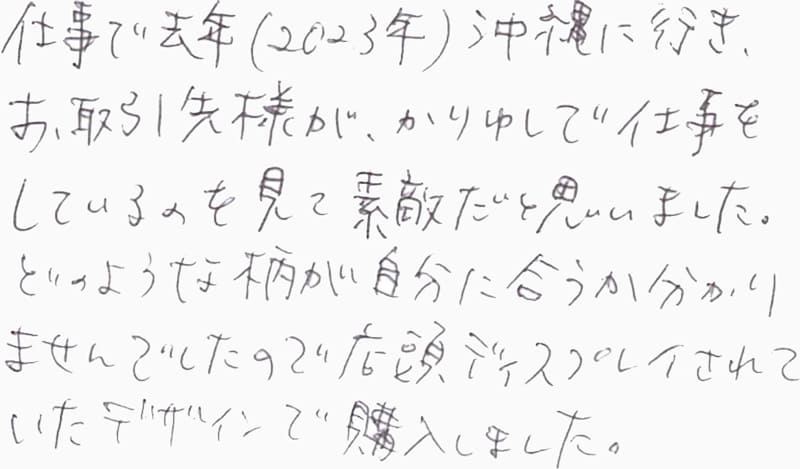 仕事で去年(2023年)沖縄に行き、
お取引先様が、かりゆしで仕事を
しているのを見て素敵だと思いました。
どのような柄が自分に合うか分かり
ませんでしたので店頭ディスプレイされて
いたデザインで購入しました。